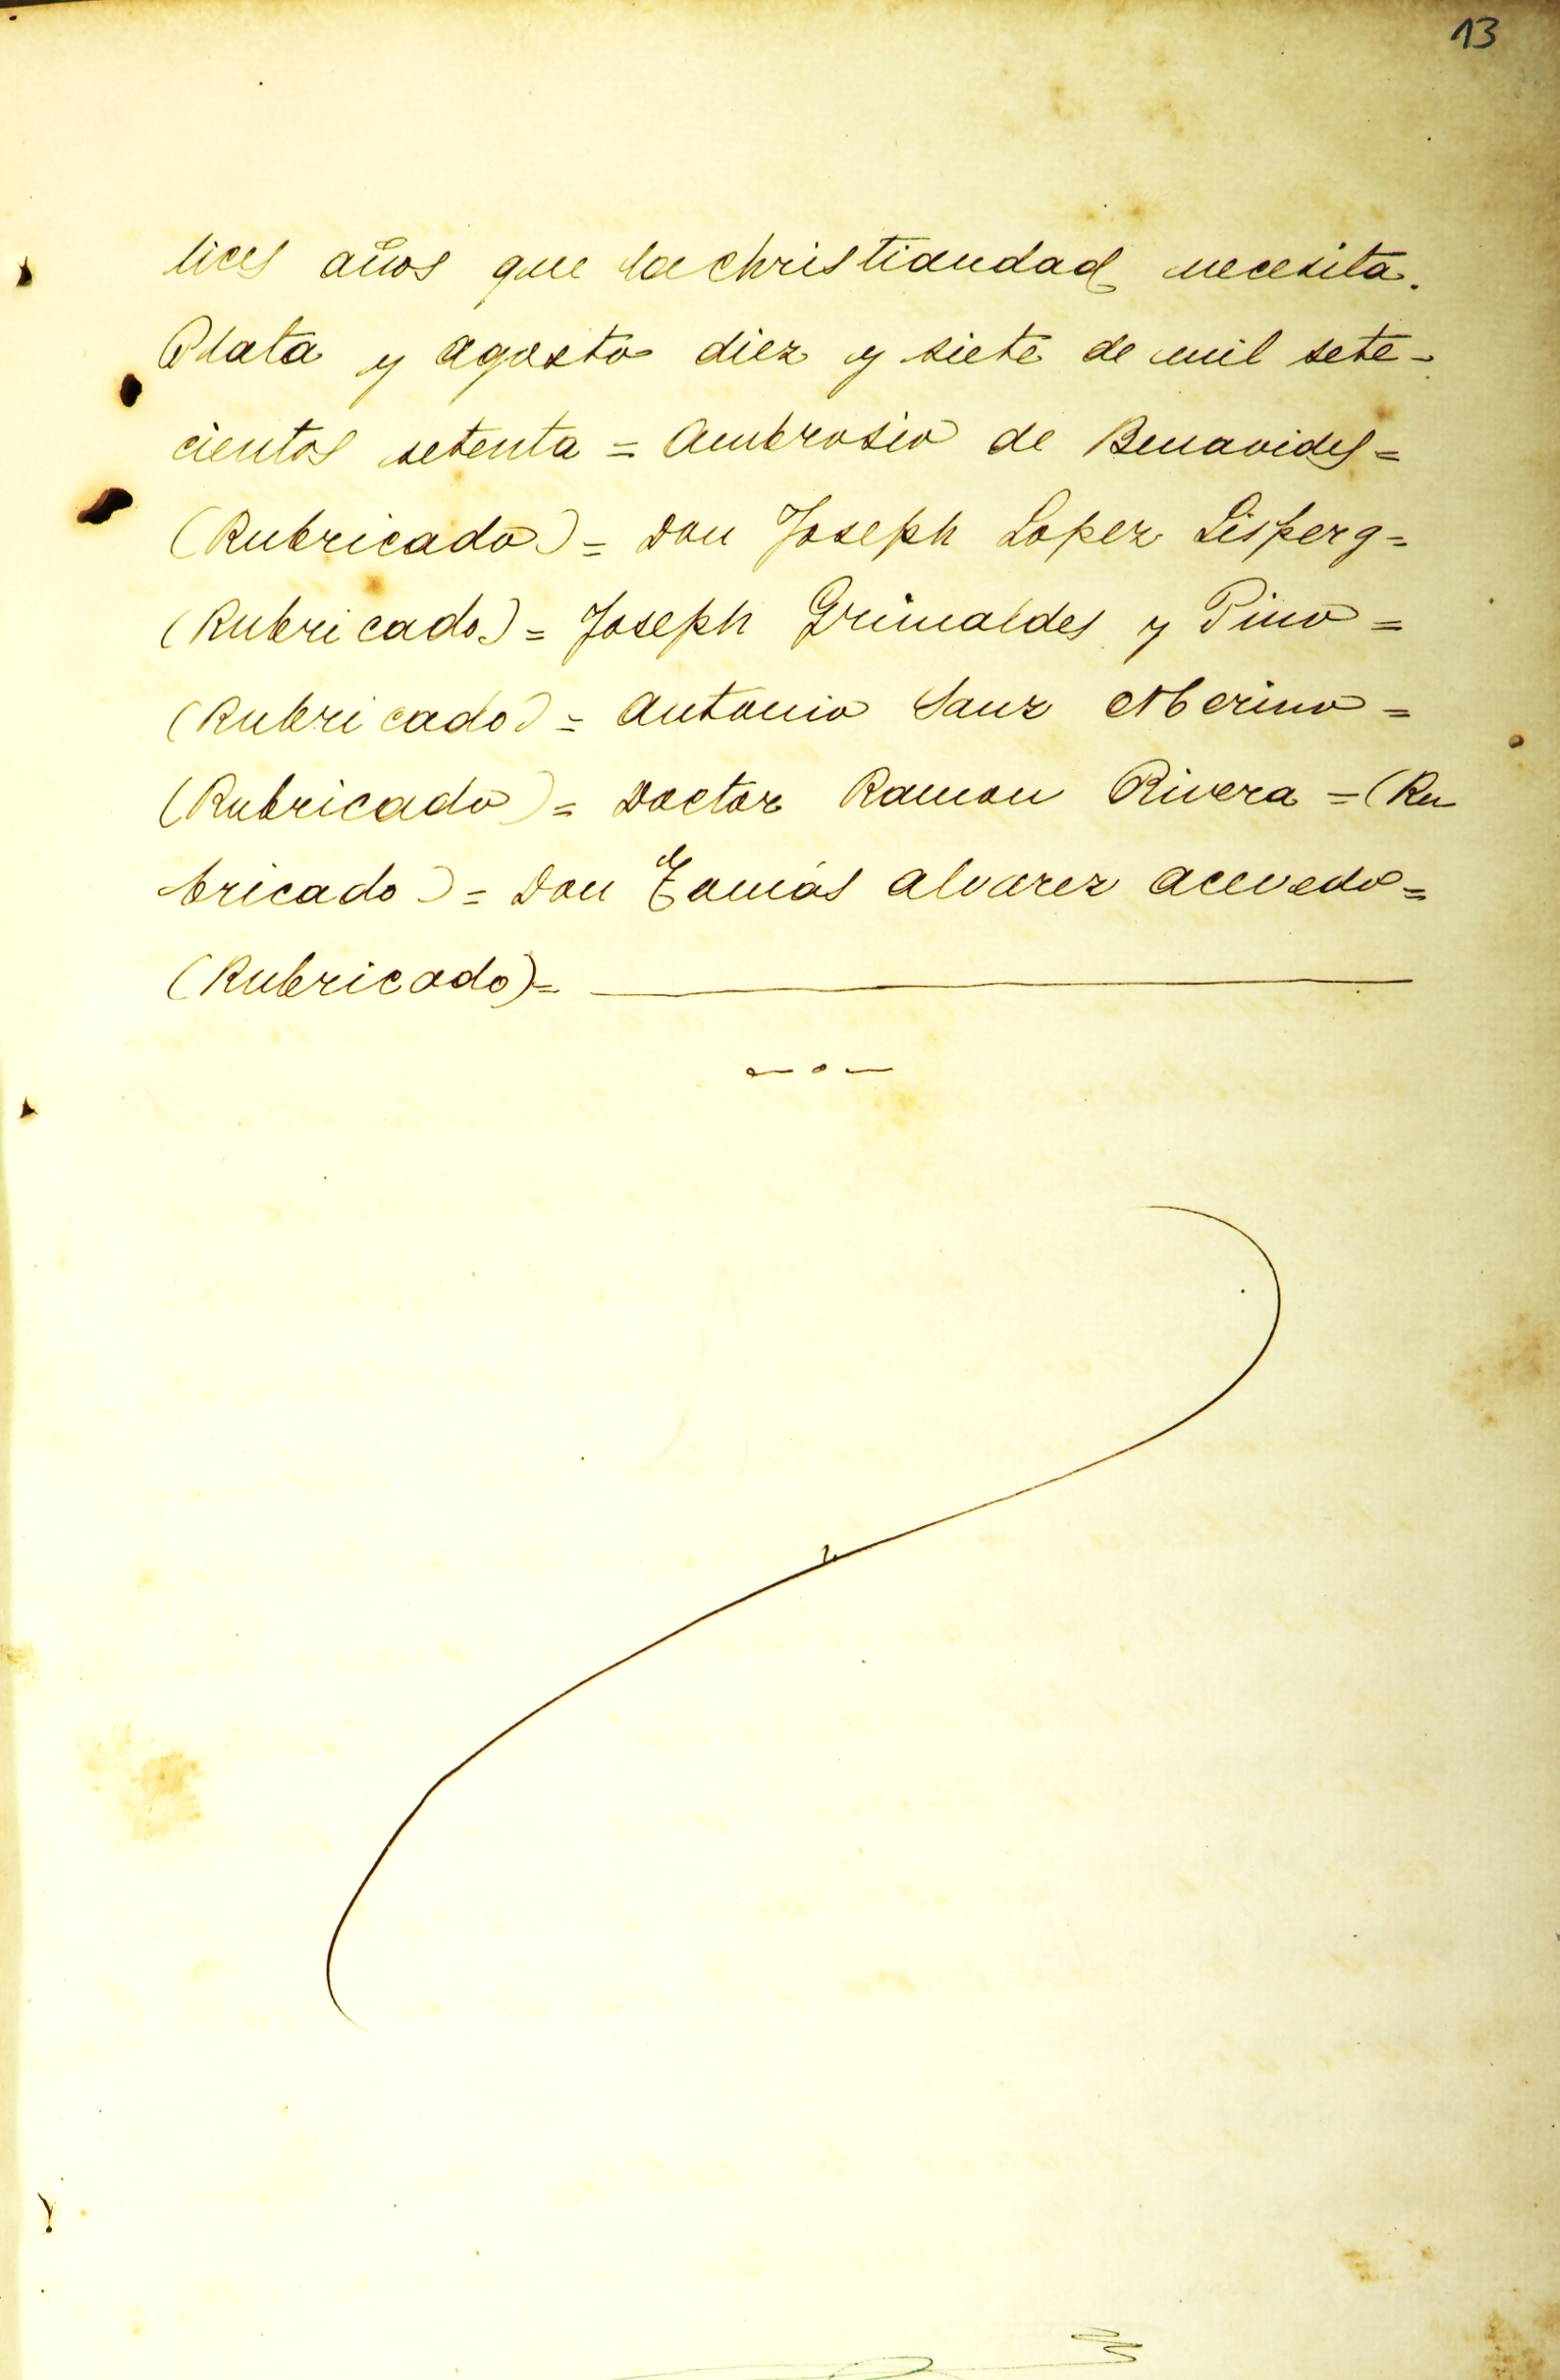 13
lices años que la christiandad necesita.
Plata y agosto diez y siete de mil sete-
cientos setenta = Ambrosio de Benavides =
(Rubricado) = Don Joseph Lopez Lisperg =
(Rubricado) = Joseph Grimaldes y Pino =
(Rubricado) = Antonio Sanz Merino =
(Rubricado) = Doctor Ramon Rivera = (Ru
bricado) = Don Tomás Alvarez Acevedo =
(Rubricado) =